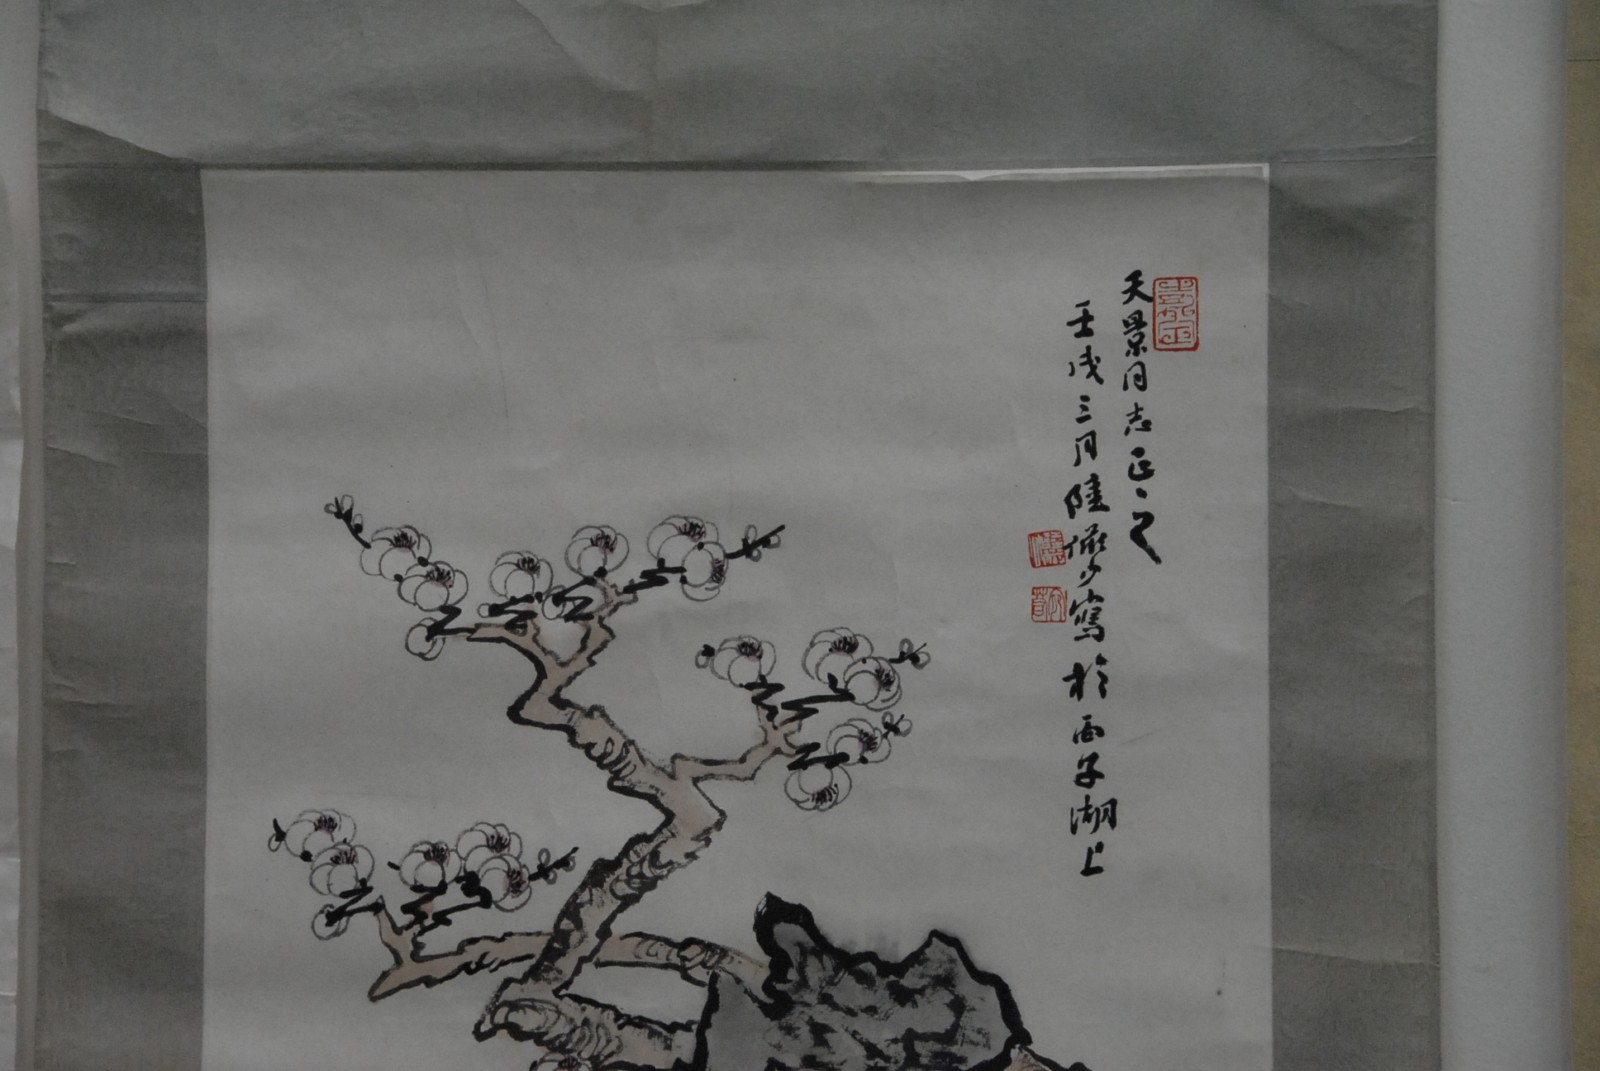 天景同志正之
壬戌三月陸儼少寫於西子湖上
嘉定